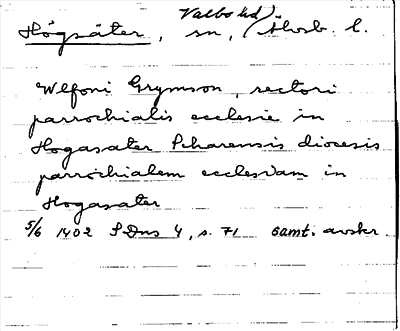 Valbo hd)
Högsäter, sn, Älvsb. l.
Wlfoni Grymson, rectori
parrochialis ecclesie in
Hogasater Scharensis diocesis
parrochialem ecclesiam in
Hogasater
5/6 1402 SDns 4, s. 71 samt. avskr.